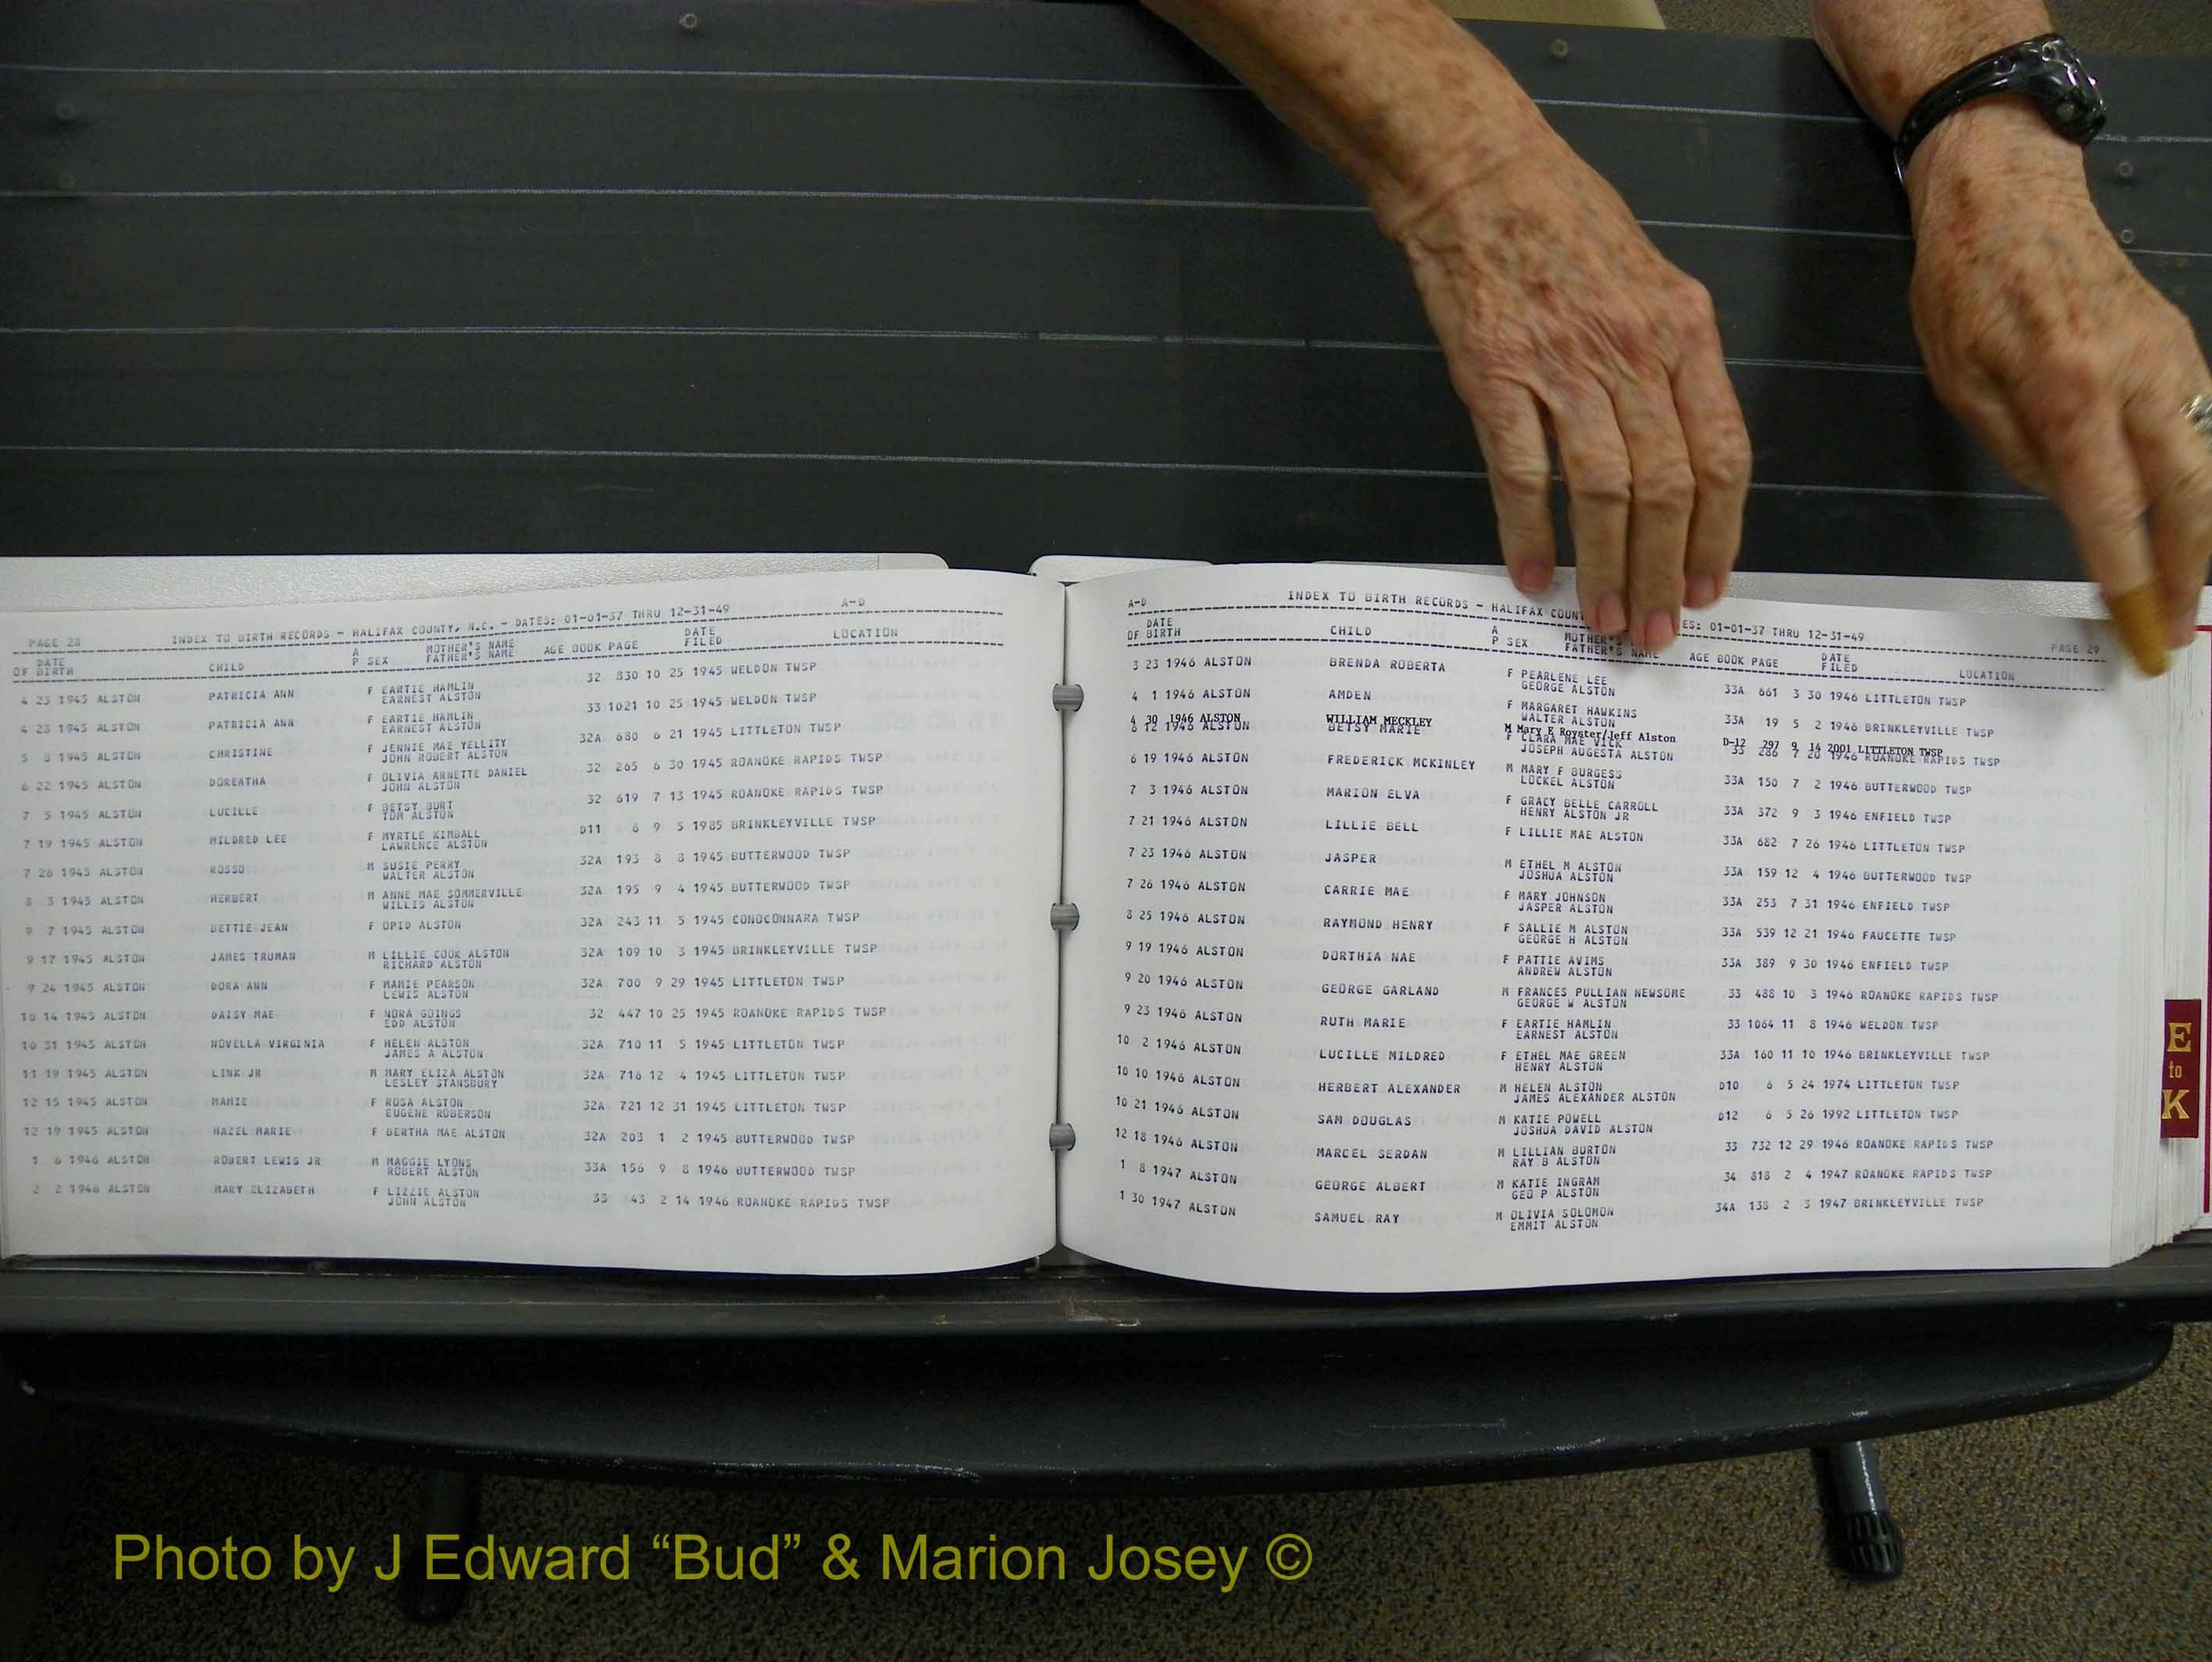 PAGE 28 INDEX TO BIRTH RECORDS - HALIFAX COUNTY, N.C. - DATES: 01-01-37 THRU 12-31-49 A-D
DATE OF BIRTH CHILD A P SEX MOTHER'S NAME FATHER'S NAME AGE BOOK PAGE DATE FILED LOCATION
4 23 1945 ALSTON PATRICIA ANN F EARTIE HAMLIN 32 830 10 25 1945 WELDON TWSP
EARNEST ALSTON
4 23 1945 ALSTON PATRICIA ANN F EARTIE HAMLIN 33 1021 10 25 1945 WELDON TWSP
EARNEST ALSTON
5 8 1945 ALSTON CHRISTINE F JENNIE MAE YELLITY 32A 680 6 21 1945 LITTLETON TWSP
JOHN ROBERT ALSTON
6 22 1945 ALSTON DOREATHA F OLIVIA ARNETTE DANIEL 32 265 6 30 1945 ROANOKE RAPIDS TWSP
JOHN ALSTON
7 5 1945 ALSTON LUCILLE F BETSY BURT 32 619 7 13 1945 ROANOKE RAPIDS TWSP
TOM ALSTON
7 19 1945 ALSTON MILDRED LEE F MYRTLE KIMBALL D11 6 9 5 1985 BRINKLEYVILLE TWSP
LAWRENCE ALSTON
7 26 1945 ALSTON ROSSO M SUSIE PERRY 32A 193 8 8 1945 BUTTERWOOD TWSP
WALTER ALSTON
8 3 1945 ALSTON HERBERT M ANNE MAE SOMMERVILLE 32A 195 9 4 1945 BUTTERWOOD TWSP
WILLIS ALSTON
9 7 1945 ALSTON BETTIE JEAN F OPID ALSTON 32A 243 11 5 1945 CONOCONNARA TWSP
9 17 1945 ALSTON JAMES TRUMAN M LILLIE COOK ALSTON 32A 109 10 3 1945 BRINKLEYVILLE TWSP
RICHARD ALSTON
9 24 1945 ALSTON DORA ANN F MAMIE PEARSON 32A 700 9 29 1945 LITTLETON TWSP
LEWIS ALSTON
10 14 1945 ALSTON DAISY MAE F NORA GOINGS 32 447 10 25 1945 ROANOKE RAPIDS TWSP
EDD ALSTON
10 31 1945 ALSTON NOVELLA VIRGINIA F HELEN ALSTON 32A 710 11 5 1945 LITTLETON TWSP
JAMES A ALSTON
11 19 1945 ALSTON LINK JR M MARY ELIZA ALSTON 32A 716 12 4 1945 LITTLETON TWSP
LESLEY STANSBURY
12 15 1945 ALSTON MAMIE F ROSA ALSTON 32A 721 12 31 1945 LITTLETON TWSP
EUGENE ROBERSON
12 19 1945 ALSTON HAZEL MARIE F BERTHA MAE ALSTON 32A 203 1 2 1945 BUTTERWOOD TWSP
1 6 1946 ALSTON ROBERT LEWIS JR M MAGGIE LYONS 33A 156 9 8 1946 BUTTERWOOD TWSP
ROBERT ALSTON
2 2 1946 ALSTON MARY ELIZABETH F LIZZIE ALSTON 33 43 2 14 1946 ROANOKE RAPIDS TWSP
JOHN ALSTON
A-D INDEX TO BIRTH RECORDS - HALIFAX COUN ES: 01-01-37 THRU 12-31-49 PAGE 29
DATE OF BIRTH CHILD A P SEX MOTHER'S FATHER'S NAME AGE BOOK PAGE DATE FILED LOCATION
3 23 1946 ALSTON BRENDA ROBERTA F PEARLENE LEE 33A 661 3 30 1946 LITTLETON TWSP
GEORGE ALSTON
4 1 1946 ALSTON AMDEN F MARGARET HAWKINS 33A 19 5 2 1946 BRINKLEYVILLE TWSP
WALTER ALSTON
4 30 1946 ALSTON WILLIAM MECKLEY M Mary E Royster/Jeff Alston D-12 297 9 14 2001 LITTLETON TWSP
6 12 1946 ALSTON BETSY MARIE F CLARA MAE VICK 33 286 7 20 1946 ROANOKE RAPIDS TWSP
JOSEPH AUGESTA ALSTON
6 19 1946 ALSTON FREDERICK MCKINLEY M MARY F BURGESS 33A 150 7 2 1946 BUTTERWOOD TWSP
LOCKEL ALSTON
7 3 1946 ALSTON MARION ELVA F GRACY BELLE CARROLL 33A 372 9 3 1946 ENFIELD TWSP
HENRY ALSTON JR
7 21 1946 ALSTON LILLIE BELL F LILLIE MAE ALSTON 33A 682 7 26 1946 LITTLETON TWSP
7 23 1946 ALSTON JASPER M ETHEL M ALSTON 33A 159 12 4 1946 BUTTERWOOD TWSP
JOSHUA ALSTON
7 26 1946 ALSTON CARRIE MAE F MARY JOHNSON 33A 253 7 31 1946 ENFIELD TWSP
JASPER ALSTON
8 25 1946 ALSTON RAYMOND HENRY F SALLIE M ALSTON 33A 539 12 21 1946 FAUCETTE TWSP
GEORGE H ALSTON
9 19 1946 ALSTON DORTHIA NAE F PATTIE AVIMS 33A 389 9 30 1946 ENFIELD TWSP
ANDREW ALSTON
9 20 1946 ALSTON GEORGE GARLAND M FRANCES PULLIAN NEWSOME 33 488 10 3 1946 ROANOKE RAPIDS TWSP
GEORGE W ALSTON
9 23 1946 ALSTON RUTH MARIE F EARTIE HAMLIN 33 1064 11 8 1946 WELDON TWSP
EARNEST ALSTON
10 2 1946 ALSTON LUCILLE MILDRED F ETHEL MAE GREEN 33A 160 11 10 1946 BRINKLEYVILLE TWSP
HENRY ALSTON
10 10 1946 ALSTON HERBERT ALEXANDER M HELEN ALSTON D10 6 5 24 1974 LITTLETON TWSP
JAMES ALEXANDER ALSTON
10 21 1946 ALSTON SAM DOUGLAS M KATIE POWELL D12 6 5 26 1992 LITTLETON TWSP
JOSHUA DAVID ALSTON
12 18 1946 ALSTON MARCEL SERDAN M LILLIAN BURTON 33 732 12 29 1946 ROANOKE RAPIDS TWSP
RAY B ALSTON
1 8 1947 ALSTON GEORGE ALBERT M KATIE INGRAM 34 818 2 4 1947 ROANOKE RAPIDS TWSP
GEO P ALSTON
1 30 1947 ALSTON SAMUEL RAY M OLIVIA SOLOMON 34A 138 2 3 1947 BRINKLEYVILLE TWSP
EMMIT ALSTON
E
to
K
Photo by J Edward “Bud” & Marion Josey ©